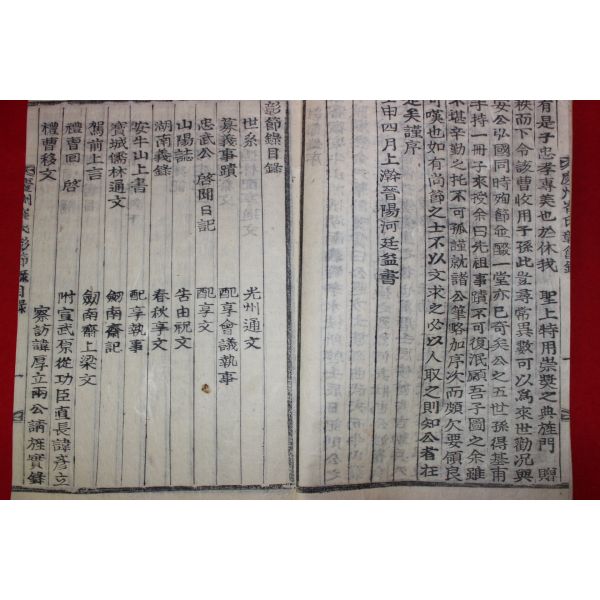 有是子忠孝專美也於休我 聖上特用崇奬之典旌門 贈
秩而下令該曹收用子孫此豈尋常異數可以爲來世勸况與
安公弘國同時殉節並醊一堂亦已奇矣公之五世孫得基甫
手持一冊子來授余曰先祖事蹟不可復泯願吾子圖之余雖
不堪辛勤之托不可孤謹就諸公筆略加序次而頗欠要領良
可嘆也如有尚節之士不以文求之必以人取之則知公者庶
是矣謹序
壬申四月上澣晉陽河廷益書
彰節錄目錄
世系
募義事蹟
忠武公 啓聞日記
山陽誌
湖南義錄
安牛山上書
寶城儒林通文
駕前上言
禮曹回 啓
禮曹移文
光州通文
配享會議執事
配享文
告由祝文
春秋享文
配享執事
劒南齋記
劒南齋上梁文
附宣武原從功臣直長諱彥立
察訪諱厚立兩公請旌實錄